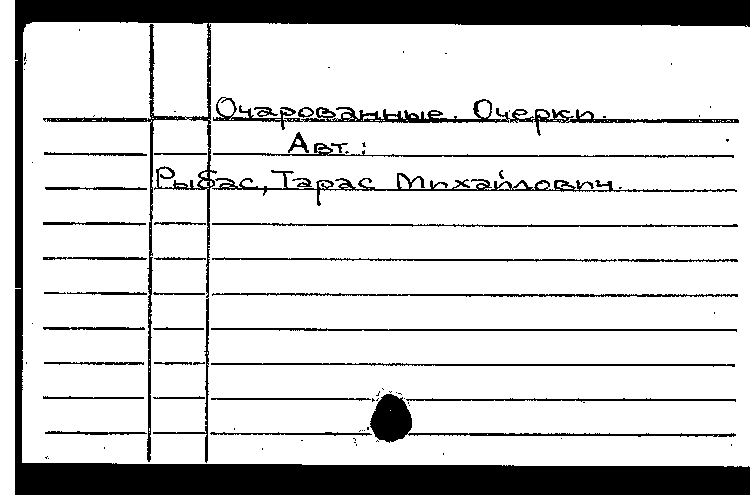 Очарованные. Очерки.
Авт.:
Рыбас, Тарас Михайлович.